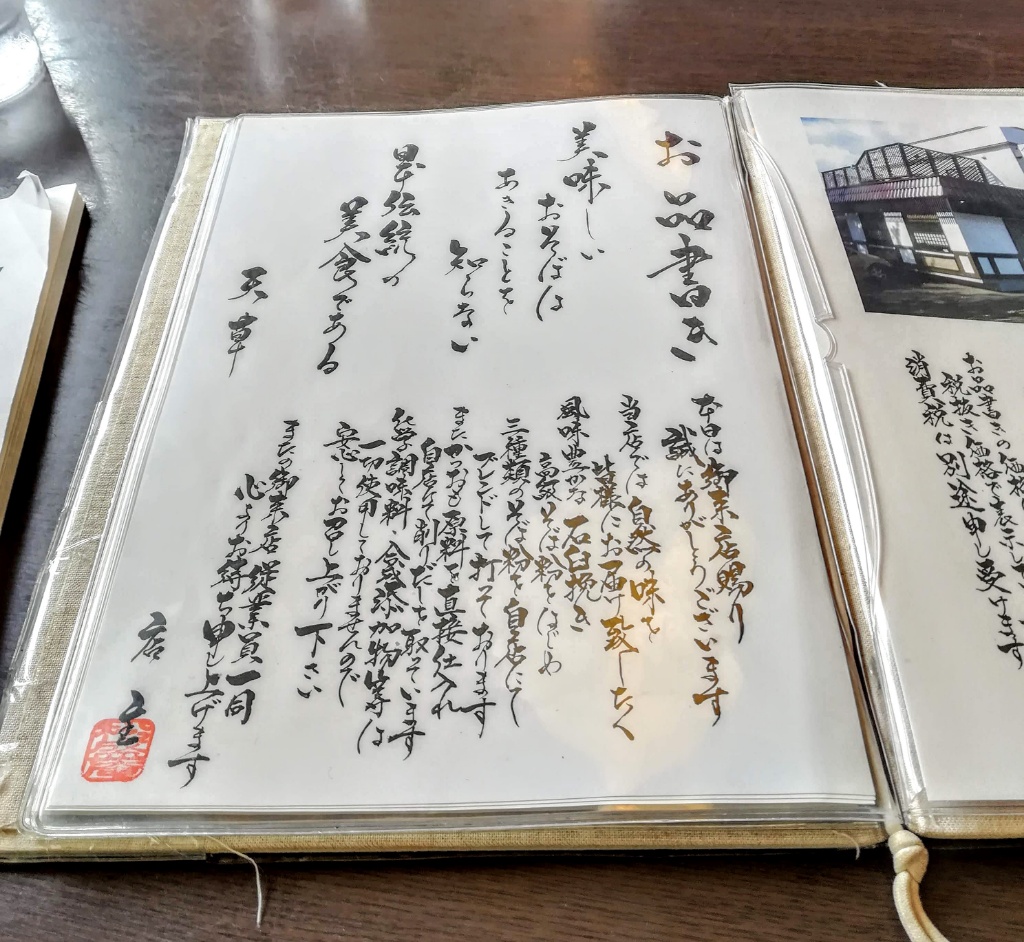 お品書き
美味しい
おそばは
あきることを
知らない
日本伝統の
美食である
天草
本日は御来店賜り
誠にありがとうございます
当店では自然の味を
皆様にお届け致したく
風味豊かな石臼挽き
高級そば粉をはじめ
三種類のそば粉を自店にて
ブレンドして打っております
またかつおも原料を直接仕入れ
自店にて削りだしを取っています
化学調味料、合成添加物等は
一切使用しておりませんので
安心してお召し上がり下さい
またの御来店従業員一同
心よりお待ち申し上げます
店主
お品書きの価格
税抜き価格で表示して
消費税は別途申し受けます